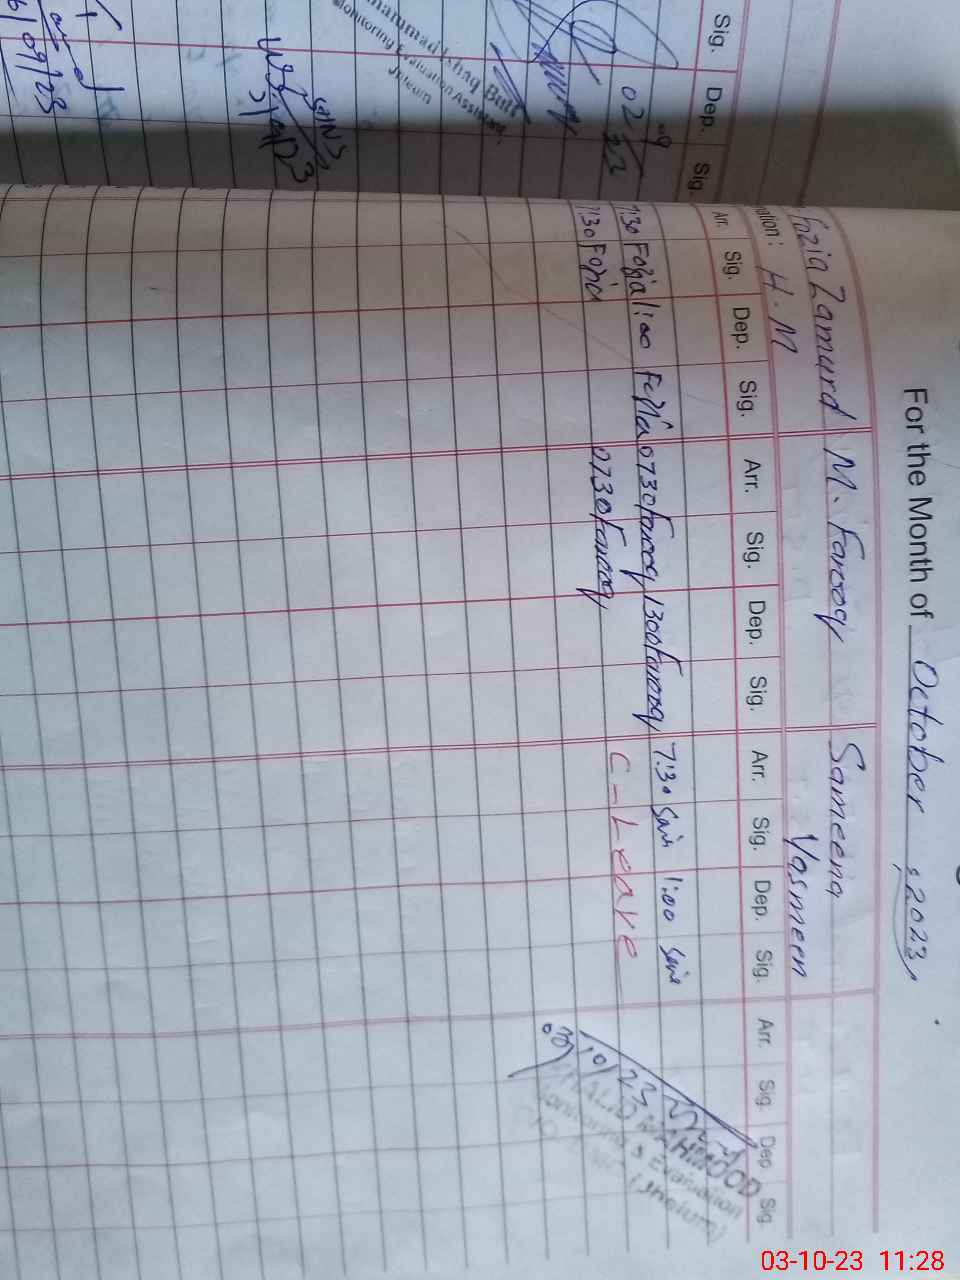 For the Month of October, 2023,
Fozia Zamurd M. Farooq Sameena Yasmeen
nation: H.M
Arr. Sig. Dep. Sig. Arr. Sig. Dep. Sig. Arr. Sig. Dep. Sig. Arr. Sig. Dep Sig.
7:30 Fozia 1:00 Fozia 0730 Farooq 1300 Farooq 7:30 1:00
7:30 Fozia 0730 Farooq C-Leave
03/10/23
KHALID MEHMOOD
Monitoring & Evaluation
(Jhelum)
Sig. Dep. Sig.
02/09/23
Muhammad Ishaq Butt
Monitoring Evaluation Assistant
Jhelum
/09/23
03-10-23 11:28